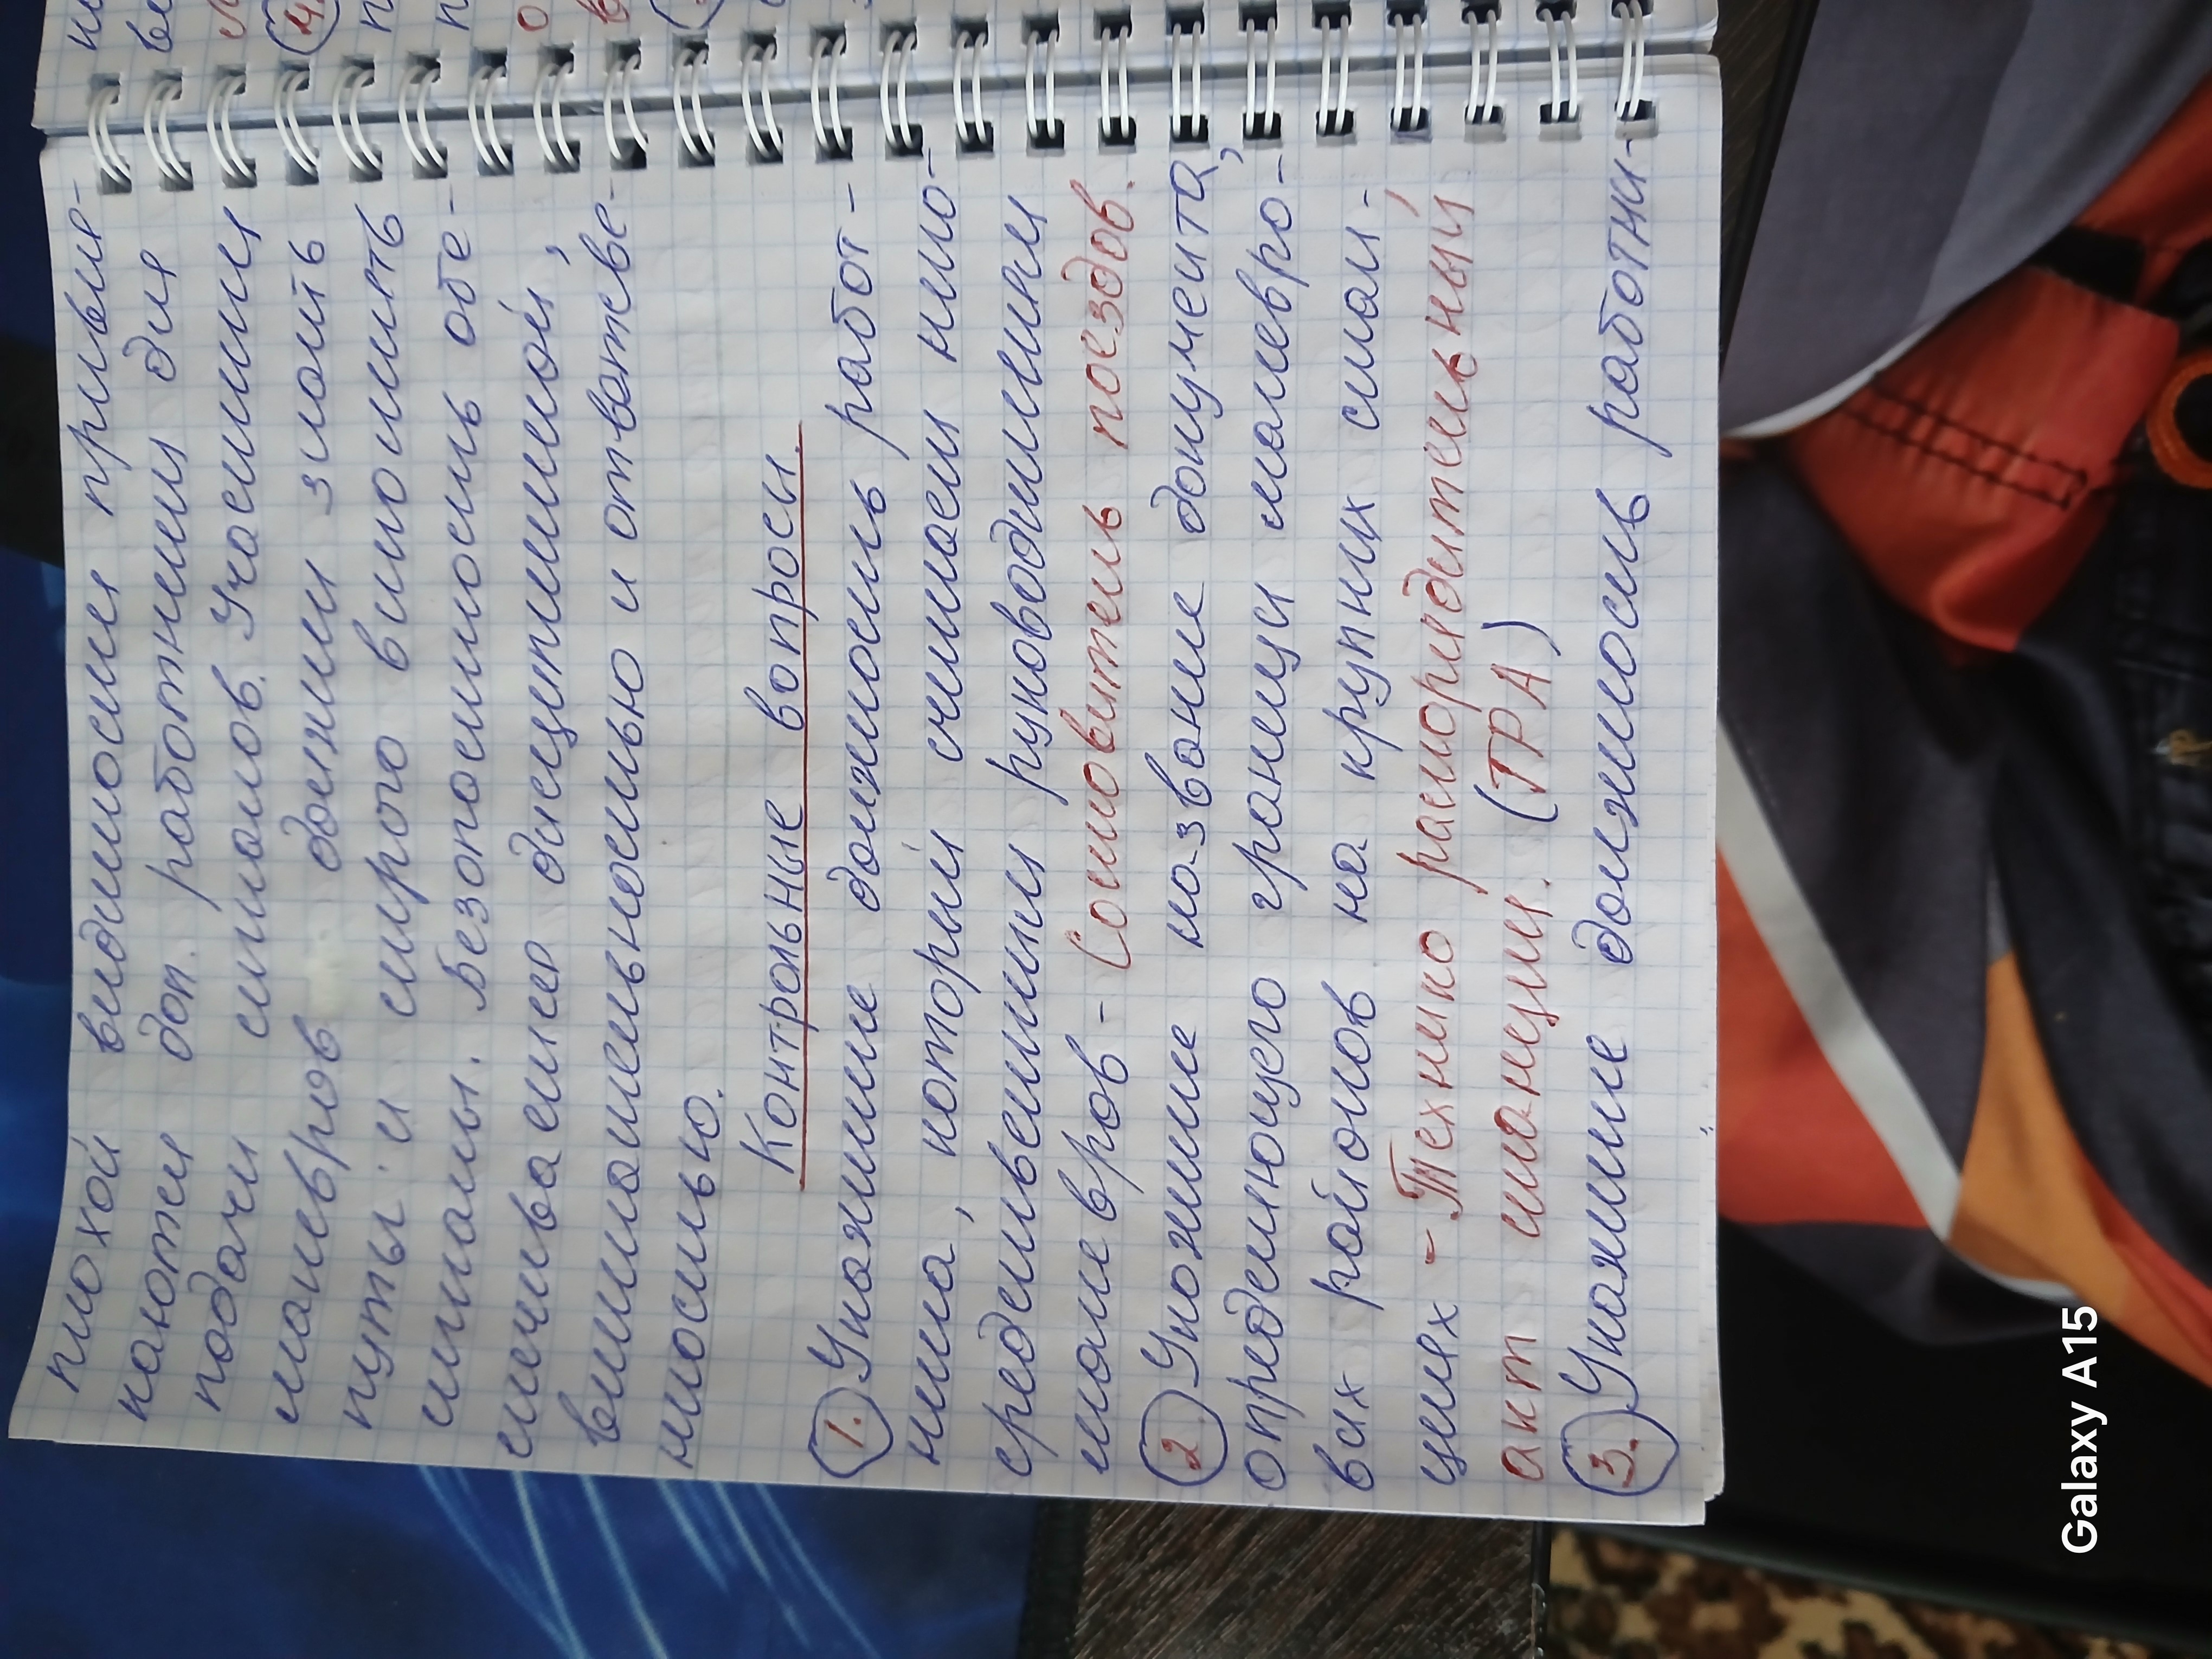 плохой видимости привле-
кают доп. работники для
подачи сигналов. Участники
манёвров должны знать
путы и строго выполнять
сигналы. Безопасность обе-
спечивается дисциплиной,
внимательностью и ответстве-
нностью.
Контрольные вопросы.
1. Укажите должность работ-
ника, который считается непо-
средственным руководителем
манёвров - Составитель поездов.
2. Укажите название документа,
определяющего границы маневро-
вых районов на крупных стан-
циях - Технико распорядительный
акт станции. (ТРА)
3. Укажите должность работни-
Galaxy A15